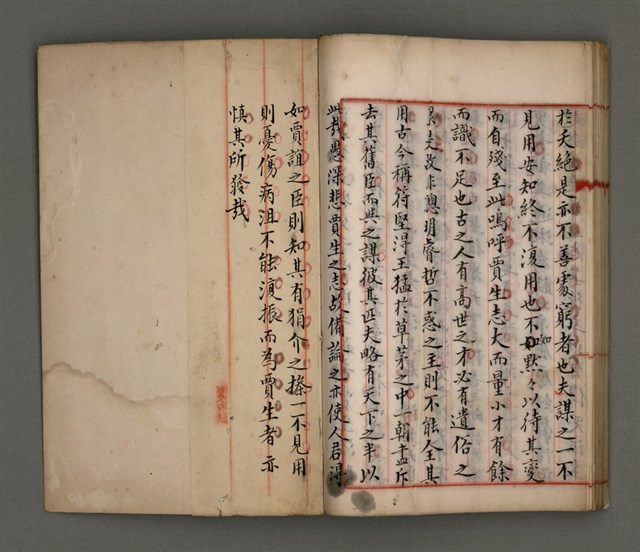 於夭絕是亦不善處窮者也夫謀之一不
見用安知終不復用也不知默々以待其變
而自殘至此嗚呼賈生志大而量小才有餘
而識不足也古之人有高世之才必有遺俗之
累是故非聰明睿哲不惑之主則不能全其
用古今稱苻堅得王猛於草茅之中一朝盡斥
去其舊臣而與之謀彼其匹夫略有天下之半以
此哉愚深悲賈生之志故備論之亦使人君得
如賈誼之臣則知其有狷介之操一不見用
則憂傷病沮不能復振而為賈生者亦
慎其所發哉